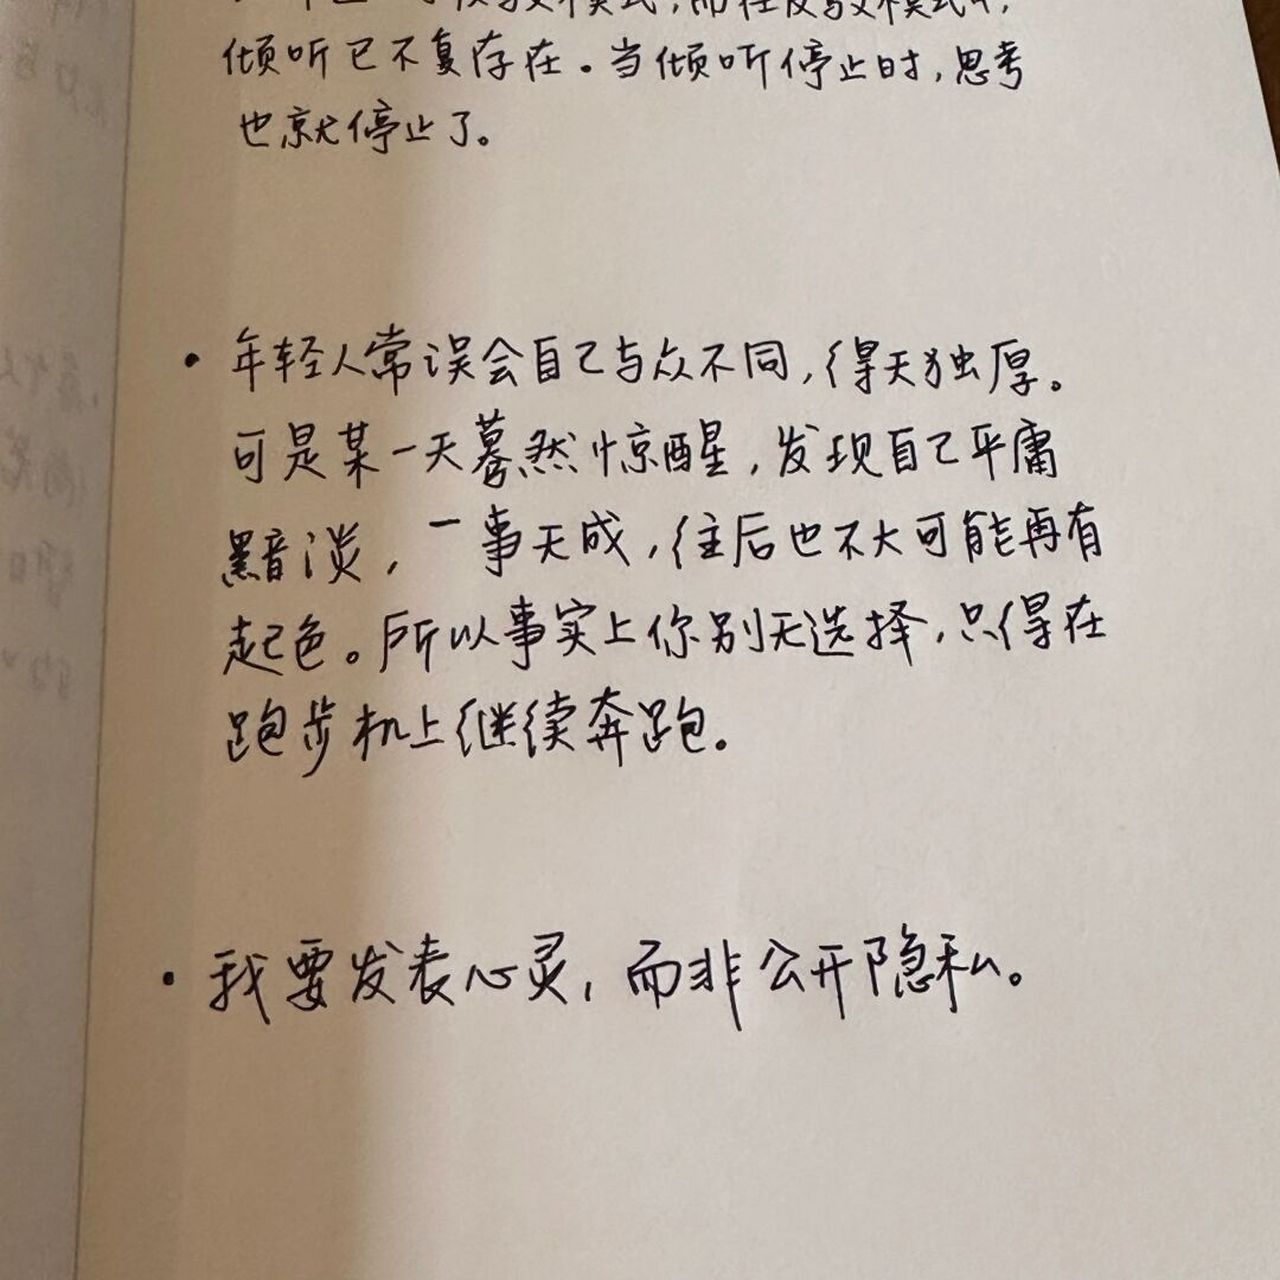 模式，而在
倾听已不复存在。当倾听停止时，思考
也就停止了。
• 年轻人常误会自己与众不同，得天独厚。
可是某一天蓦然惊醒，发现自己平庸
黯淡，一事无成，往后也不大可能再有
起色。所以事实上你别无选择，只得在
跑步机上继续奔跑。
• 我要发表心灵，而非公开隐私。